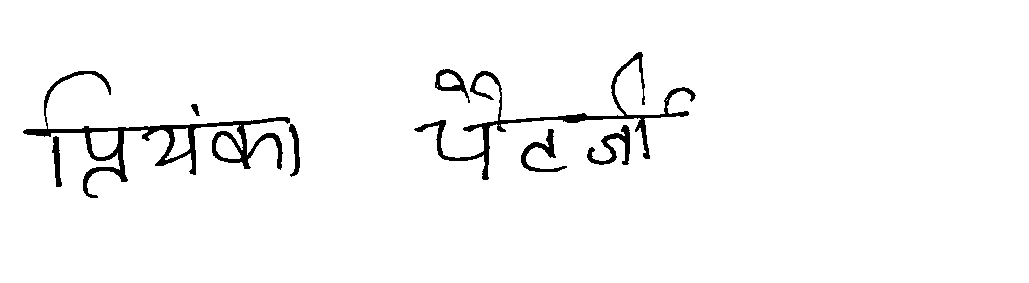 प्रियंका चैटर्जी